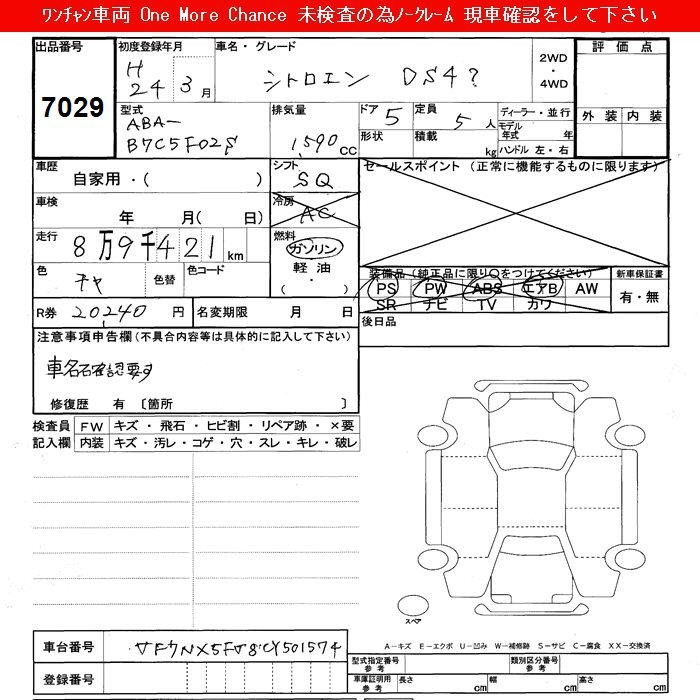 ﾜﾝﾁｬﾝ車両 One More Chance 未検査の為ﾉｰｸﾚｰﾑ 現車確認をして下さい
出品番号 初度登録年月 車名・グレード 評価点
7029 H 24 3月 シトロエン DS4? 2WD・4WD 外装 内装
型式 排気量 ドア 5 定員 5人 ディーラー・並行
ABA- B7C5F02S 1,590cc 形状 積載 kg モデル年式 年
ハンドル 左・右
車歴 シフト セールスポイント (正常に機能するものに限ります)
自家用・( ) SQ
車検 冷房
年 月( 日) AC
走行 8万9千421km 燃料
ガソリン
軽油・
( )
色 チャ 色替 色コード
装備品 (純正品に限り○をつけてください) 新車保証書
PS PW ABS エアB AW 有・無
SR ナビ TV カワ
R券 20240円 名変期限 月 日 後日品
注意事項申告欄 (不具合内容等は具体的に記入して下さい)
車名確認要す
修復歴 有 〔箇所 〕
検査員 FW キズ・飛石・ヒビ割・リペア跡・×要
記入欄 内装 キズ・汚レ・コゲ・穴・スレ・キレ・破レ
スペア
A−キズ E−エクボ U−凹み W−補修跡 S−サビ C−腐食 XX−交換済
車台番号
登録番号
型式指定番号 参考 類別区分番号 参考
車庫証明用 参考 長さ cm 幅 cm 高さ cm